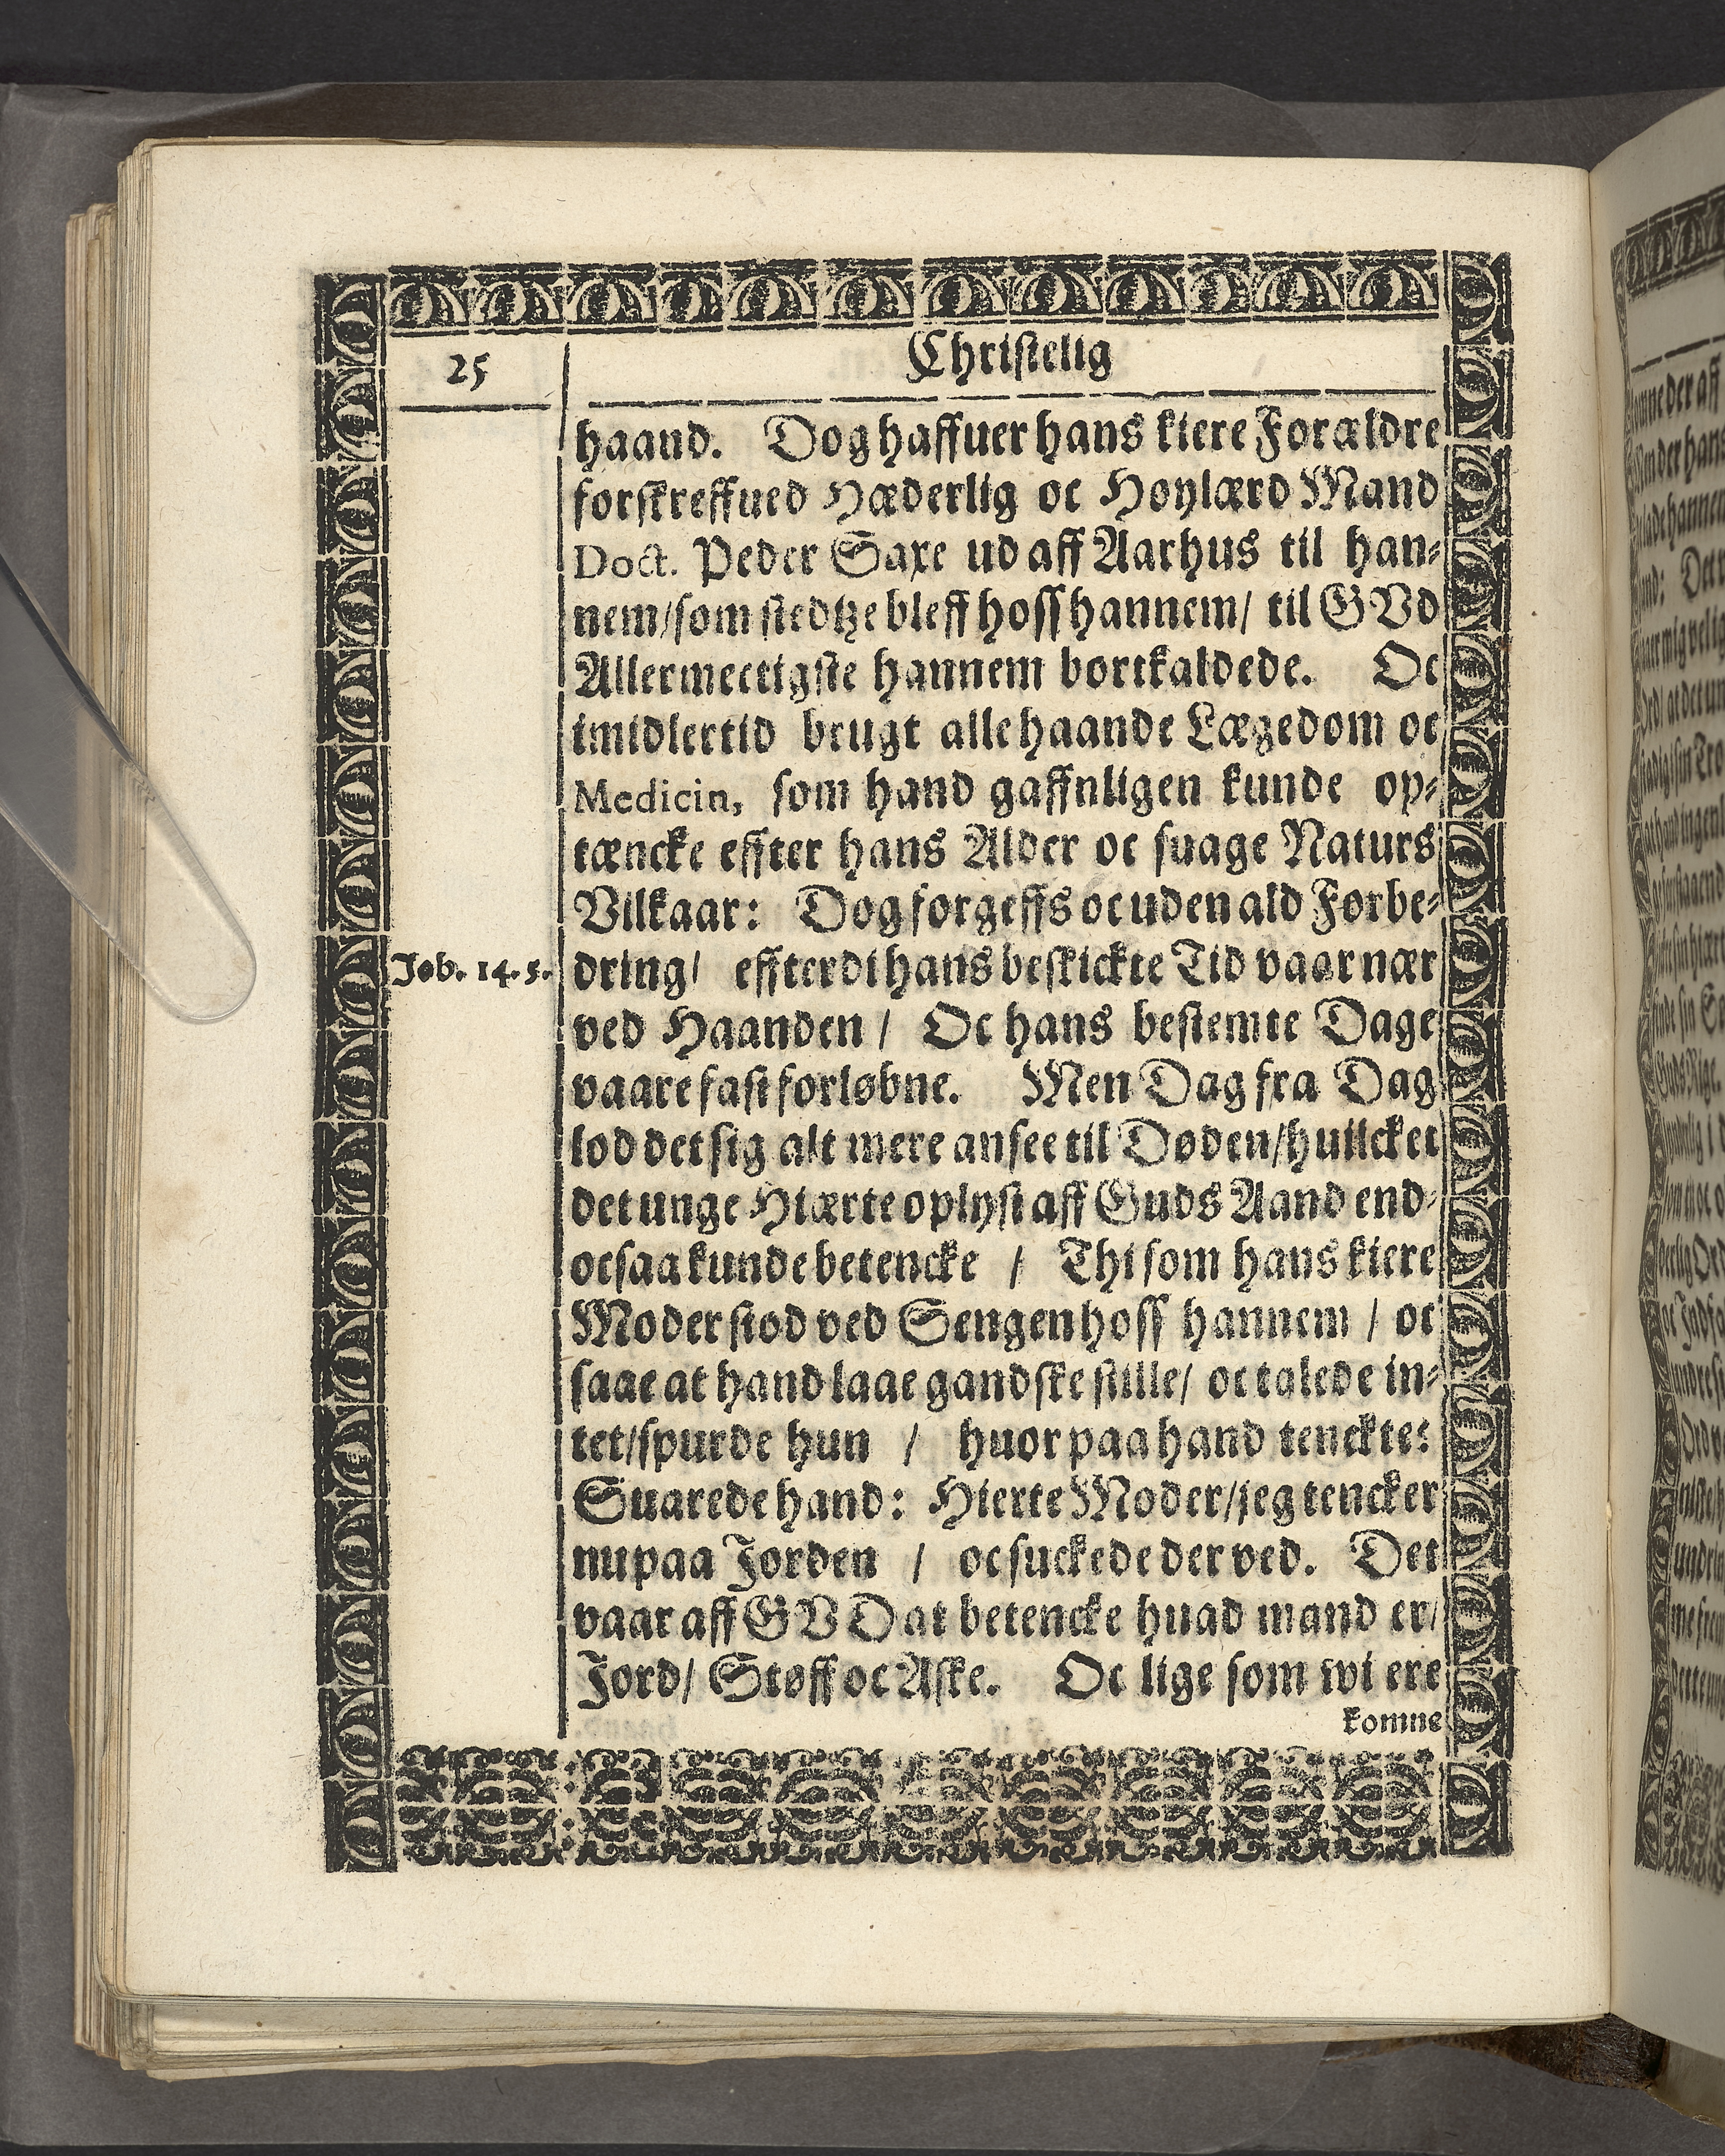 25
Christelig
haand. Dog haffuer hans kiere Forældre
forskreffued Hæderlig oc Høylærd Mand
Doct. Peder Saxe ud aff Aarhus til han-
nem/som stedtze bleff hoss hannem/ til GVd
Allermectigste hannem bortkaldede. Oc
imidlertid brugt allehaande Lægedom oc
Medicin, som hand gaffnligen kunde op-
tæncke effter hans Alder oc suage Naturs
Vilkaar: Dog forgeffs oc uden ald Forbe-
Job. 14. 5.
dring/ effterdi hans beskickte Tid vaar nær
ved Haanden / Oc hans bestemte Dage
vaare fast forløbne. Men Dag fra Dag
lod det sig alt mere ansee til Døden/huilcket
det unge Hiærte oplyst aff Guds Aand end-
ocsaa kunde betencke / Thi som hans kiere
Moder stod ved Sengen hoss hannem / oc
saae at hand laae gandske stille/ oc talede in-
tet/spurde hun / huor paa hand tenckte:
Suarede hand: Hierte Moder/jeg tencker
nu paa Jorden / oc suckede der ved. Det
vaar aff GVD at betencke huad mand er/
Jord/ Støff oc Aske. Oc lige som wi ere
komne